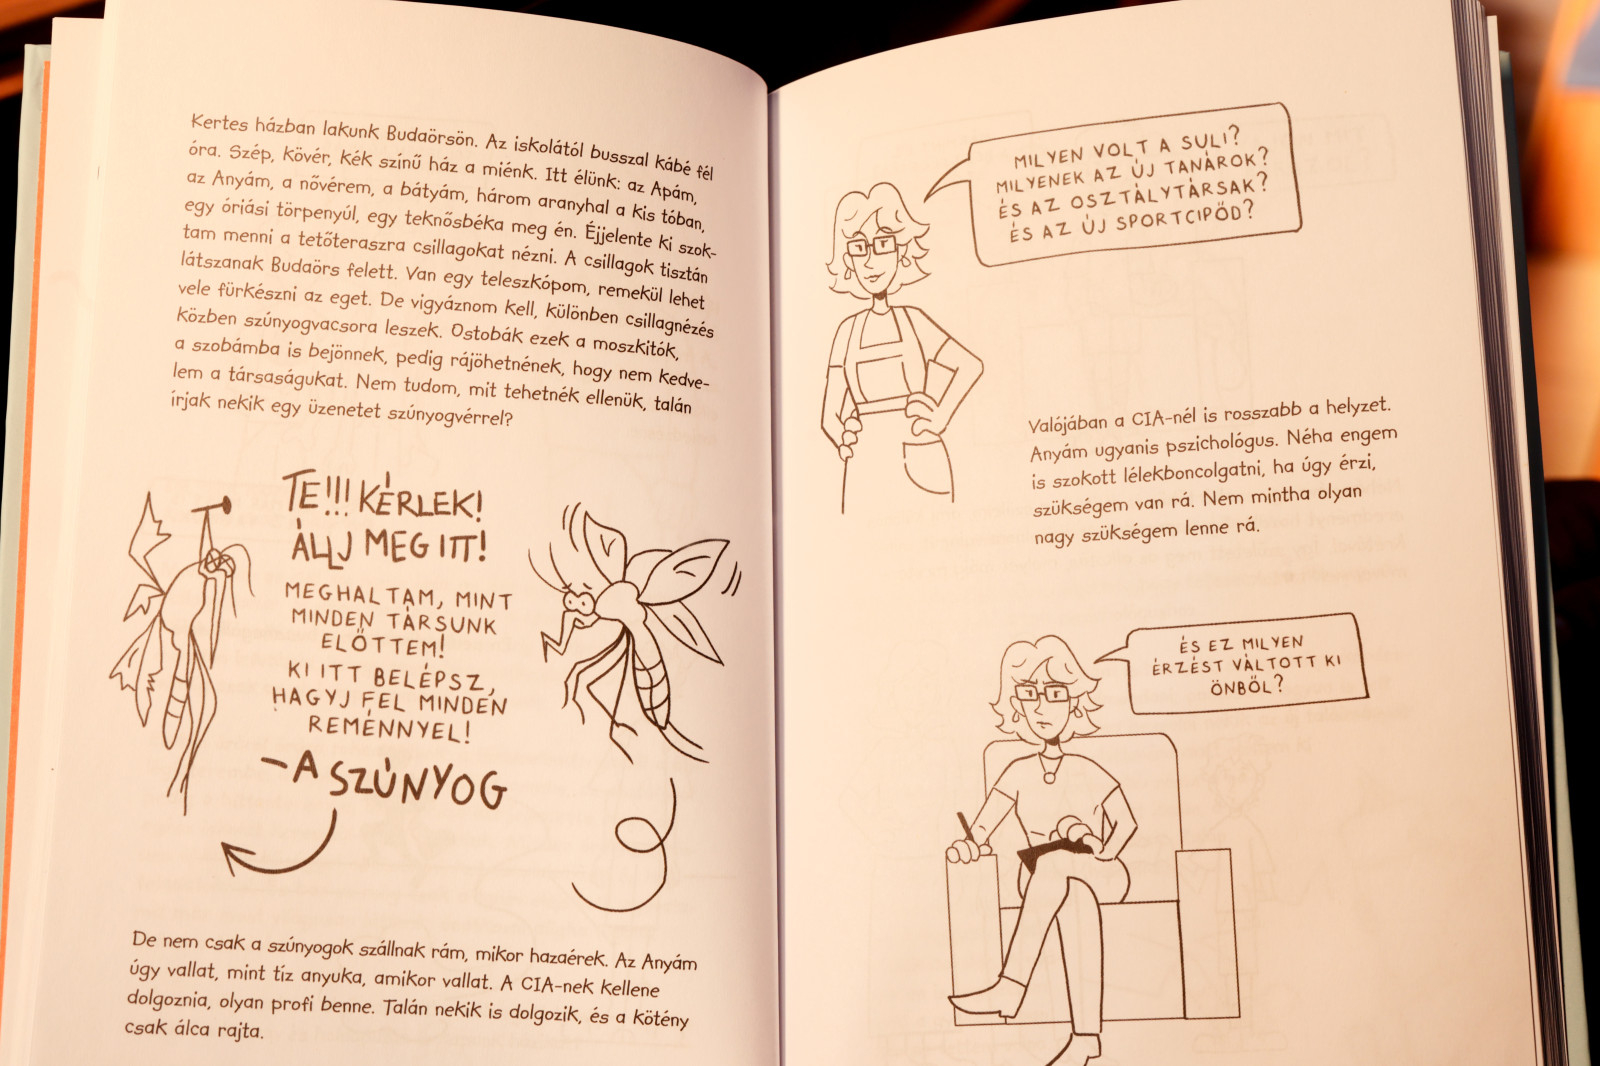 Kertes házban lakunk Budaörsön. Az iskolától busszal kábé fél
óra. Szép, kövér, kék színű ház a miénk. Itt élünk: az Apám,
az Anyám, a nővérem, a bátyám, három aranyhal a kis tóban,
egy óriási törpenyúl, egy teknősbéka meg én. Éjjelente ki szok-
tam menni a tetőteraszra csillagokat nézni. A csillagok tisztán
látszanak Budaörs felett. Van egy teleszkópom, remekül lehet
vele fürkészni az eget. De vigyáznom kell, különben csillagnézés
közben szúnyogvacsora leszek. Ostobák ezek a moszkitók,
a szobámba is bejönnek, pedig rájöhetnének, hogy nem kedve-
lem a társaságukat. Nem tudom, mit tehetnék ellenük, talán
írjak nekik egy üzenetet szúnyogvérrel?
TE!!! KÉRLEK!
ÁLLJ MEG ITT!
MEGHALTAM, MINT
MINDEN TÁRSUNK
ELŐTTEM!
KI ITT BELÉPSZ,
HAGYJ FEL MINDEN
REMÉNNYEL!
-A SZÚNYOG
De nem csak a szúnyogok szállnak rám, mikor hazaérek. Az Anyám
úgy vallat, mint tíz anyuka, amikor vallat. A CIA-nek kellene
dolgoznia, olyan profi benne. Talán nekik is dolgozik, és a kötény
csak álca rajta.
MILYEN VOLT A SULI?
MILYENEK AZ ÚJ TANÁROK?
ÉS AZ OSZTÁLYTÁRSAK?
ÉS AZ ÚJ SPORTCIPŐD?
Valójában a CIA-nél is rosszabb a helyzet.
Anyám ugyanis pszichológus. Néha engem
is szokott lélekboncolgatni, ha úgy érzi,
szükségem van rá. Nem mintha olyan
nagy szükségem lenne rá.
ÉS EZ MILYEN
ÉRZÉST VÁLTOTT KI
ÖNBŐL?